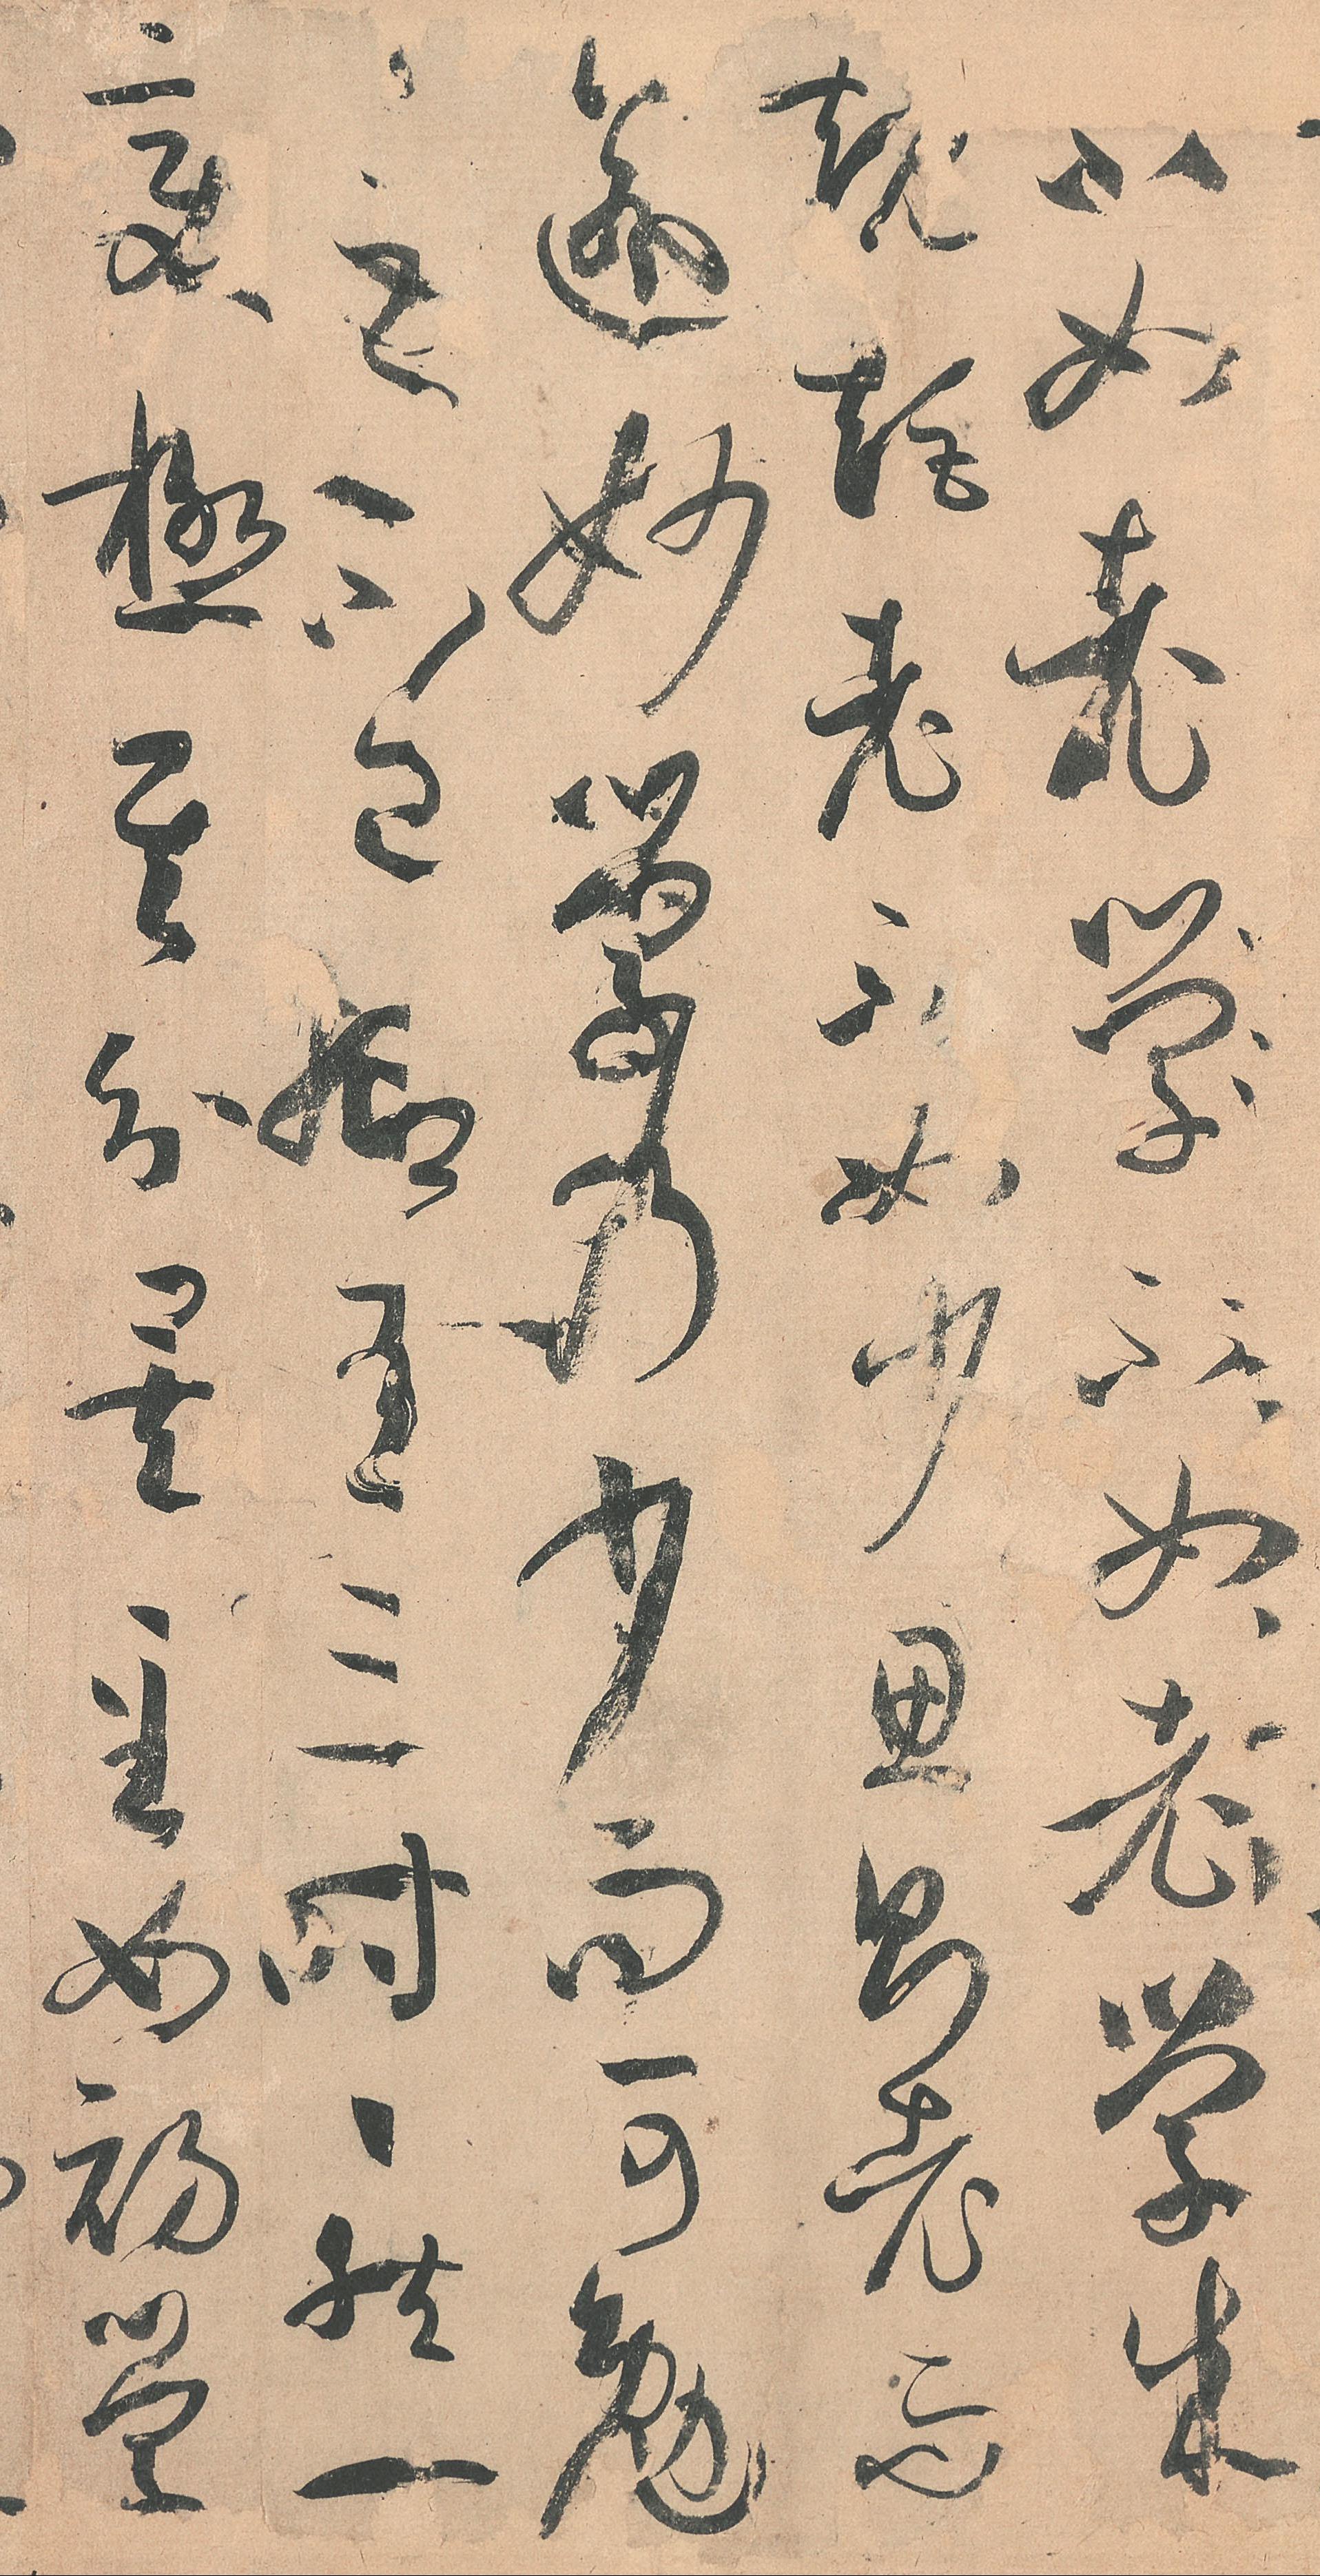 不如老學不如老學成
規矩老不如少思則老而
逾妙學乃少而可勉
々之不已抑有三時々然一
變極其分矣至如初學